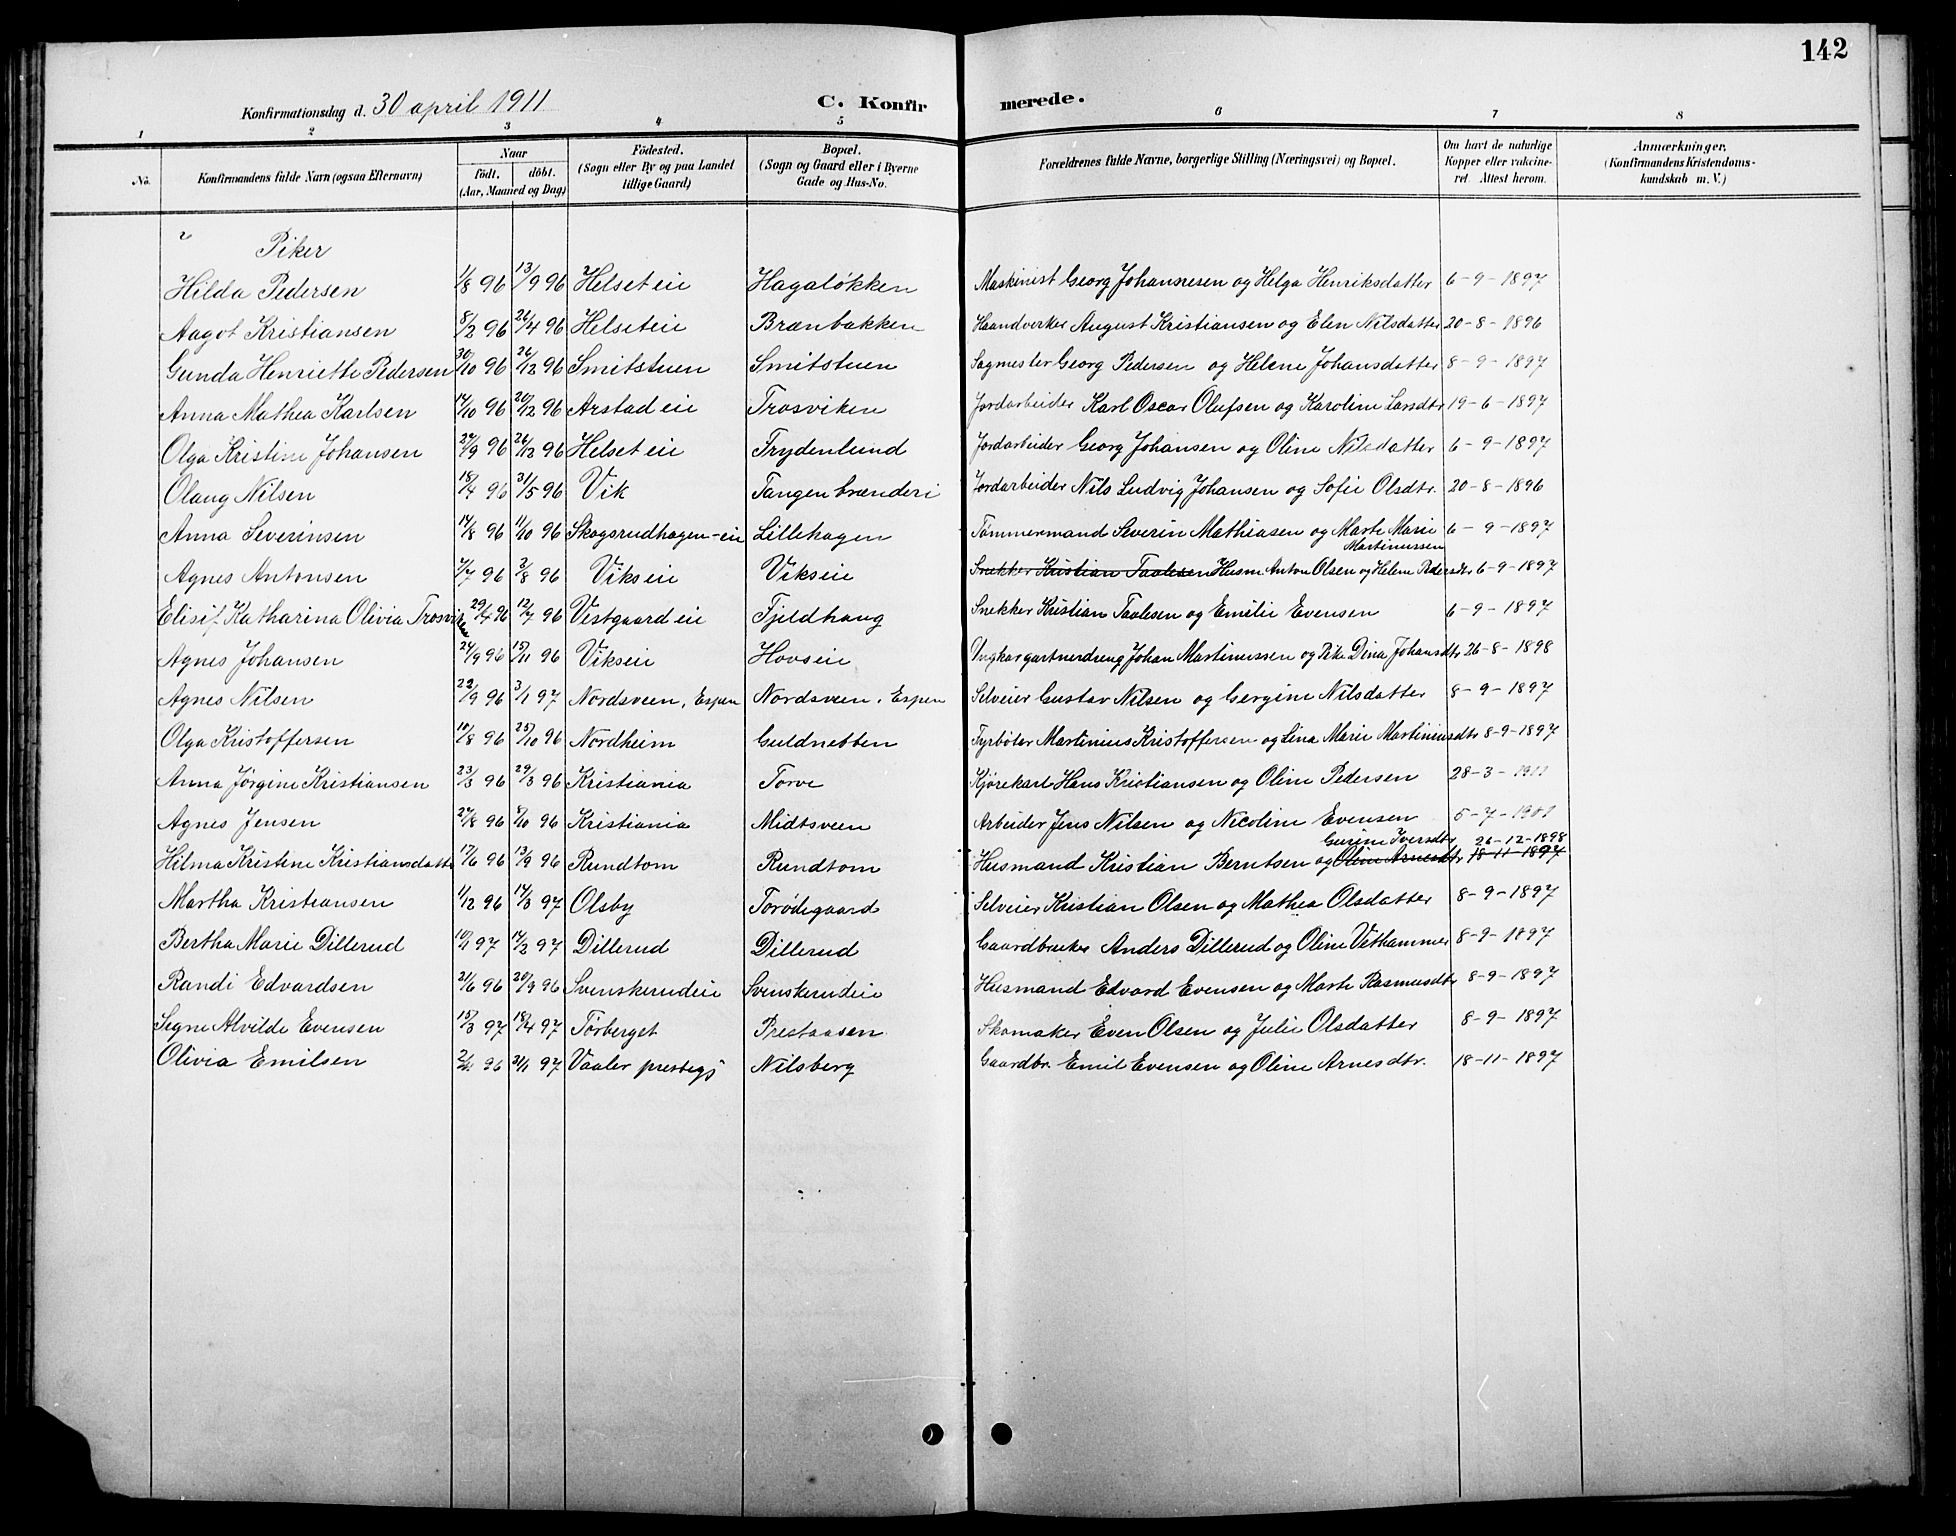 142
Konfirmationsdag d. 30 april 1911 C. Konfir merede.
1 2 3 4 5 6 7 8
No. Konfirmandens fulde Navn (ogsaa Efternavn) Naar födt. döbt. (Aar, Maaned og Dag) Födested. (Sogn eller By og paa Landet tillige Gaard) Bopæl. (Sogn og Gaard eller i Byerne Gade og Hus-No. Forældrenes fulde Navne, borgerlige Stilling (Næringsvei) og Bopæl. Om havt de naturlige Kopper eller vakcineret Attest herom. Anmærkninger, (Konfirmandens Kristendomskundskab m. V.)
Piker
Hilda Pedersen 1/8 96 13/9 96 Helset eie Hagaløkken Maskinist Georg Johannesen og Helga Henriksdatter 6-9-1897
Aagot Kristiansen 8/2 96 26/4 96 Helset eie Brænbakken Haandverker August Kristiansen og Elen Nilsdatter 20-8-1896
Gunda Henriette Pedersen 30/10 96 26/12 96 Smitstuen Smitstuen Sagmester Georg Pedersen og Helene Johansdatter 8-9-1897
Anna Mathea Karlsen 14/10 96 20/12 96 Arstad eie Trosviken Jordarbeider Karl Oscar Olufsen og Karoline Larsdtr 19-6-1897
Olga Kristine Johansen 24/9 96 26/12 96 Helset eie Frydenlund Jordarbeider Georg Johansen og Oline Nilsdatter 6-9-1897
Olaug Nilsen 18/4 96 31/5 96 Vik Tangen brænderi Jordarbeider Nils Ludvig Johansen og Sofie Olsdtr. 20-8-1896
Anna Severinsen 14/8 96 11/10 96 Skogsrudhagen-eie Lillehagen Tømmermand Severin Mathiasen og Marte Marie Martinussen 6-9-1897
Agnes Antonsen 7/7 96 2/8 96 Viks eie Viks eie Snekker Kristian Taalesen Husm Anton Olsen og Helene Pedersdtr 6-9-1897
Elisif Katharina Olivia Trosviken 29/4 96 12/7 96 Vestgaard eie Fjeldhaug Snekker Kristian Taalesen og Emilie Evensen 6-9-1897
Agnes Johansen 24/9 96 15/11 96 Viks eie Hovs eie Ungkar gartnerdreng Johan Martinussen og Pike Dina Johansdtr 26-8-1898
Agnes Nilsen 22/9 96 3/1 97 Nordsveen, Espen Nordsveen, Espen Selveier Gustav Nilsen og Gergine Nilsdatter 8-9-1897
Olga Kristoffersen 10/8 96 25/10 96 Nordheim Guldnebben Fyrbøter Martinius Kristoffersen og Lina Marie Martiniusdtr 8-9-1897
Anna Jørgine Kristiansen 23/3 96 29/3 96 Kristiania Torve Kjørekarl Hans Kristiansen og Oline Pedersen 28-3-1911
Agnes Jensen 27/8 96 8/10 96 Kristiania Midtsveen Arbeider Jens Nilsen og Nicoline Evensen 5-7-1901
Gurine Iversdtr 26-12-1898
Hilma Kristine Kristiansdatter 17/6 96 13/9 96 Rundtom Rundtom Husmand Kristian Berntsen og Oline Arnesdtr 18-11-1897
Martha Kristiansen 1/12 96 14/3 97 Olsby Torødegaard Selveier Kristian Olsen og Mathea Olsdatter 8-9-1897
Bertha Marie Dillerud 10/1 97 14/2 97 Dillerud Dillerud Gaardbruker Anders Dillerud og Oline Vethammer 8-9-1897
Randi Edvardsen 21/6 96 20/9 96 Svenskerudeie Svenskerudeie Husmand Edvard Evensen og Marte Rasmusdtr 8-9-1897
Segne Alvilde Evensen 15/3 97 18/4 97 Törberget Prestaasen Skomaker Even Olsen og Julie Olsdatter 8-9-1897
Olivia Emilsen 96 31/1 97 Vaaler prestegj Nilsberg Gaardbr. Emil Evensen og Oline Arnesdtr. 18-11-1897